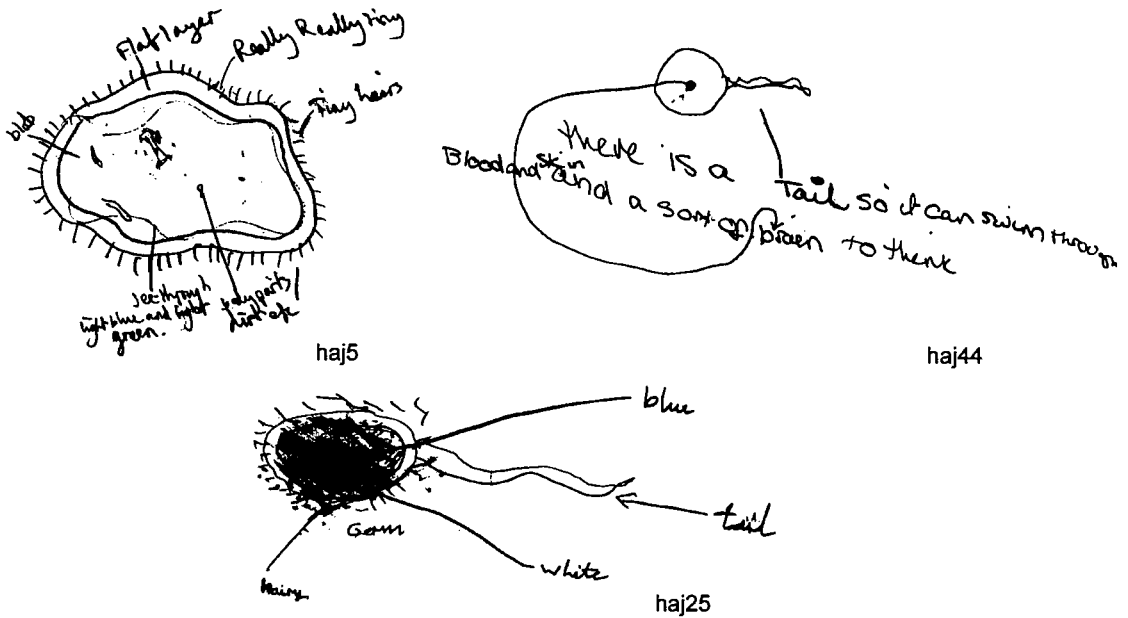 Flat layer
Really Really tiny
Tiny hairs
blob
See through
light blue and light
green.
body parts
dirt etc
haj5
there is a
Blood and skin
and a sort of brain to think
Tail so it can swim through
haj44
blue
tail
white
Germ
hairy
haj25